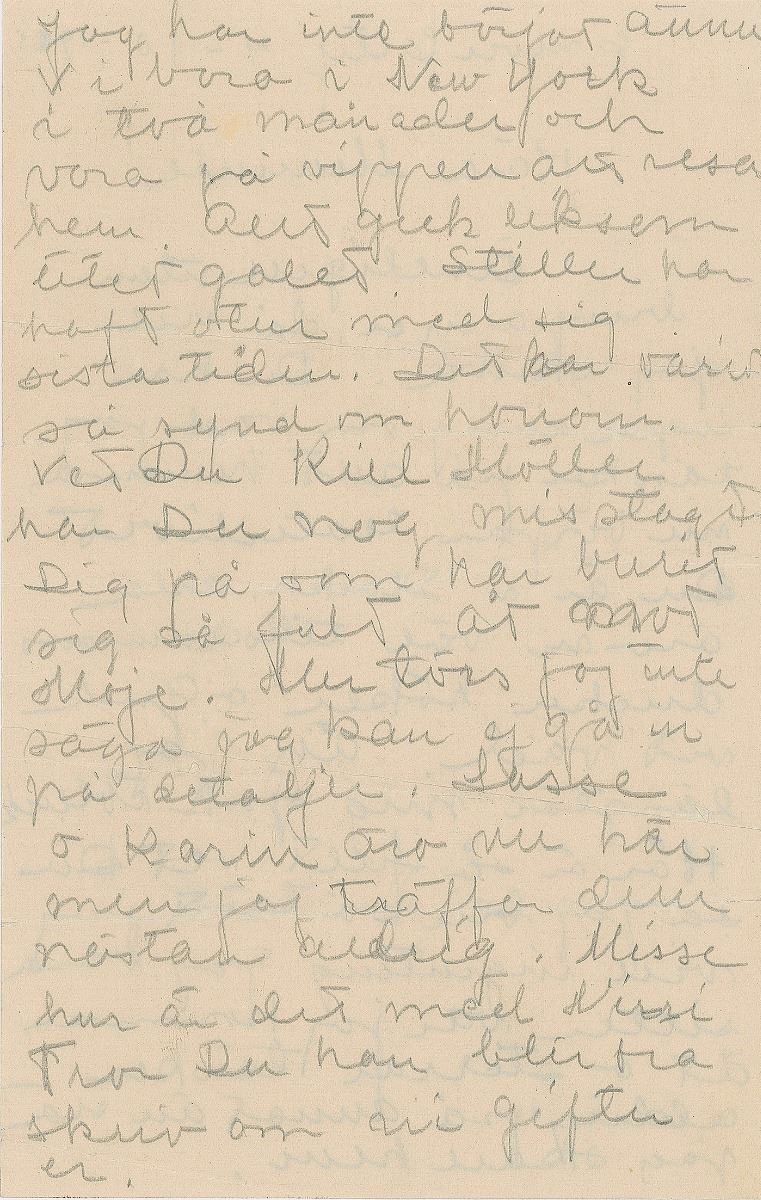 Jag har inte börjat ännu
Vi vora i New York
i två månader och
vora på vippen att resa
hem. Allt gick liksom
litet galet Stiller har
haft otur med sig
sista tiden. Det har varit
så synd om honom.
Vet Du Kiell Möller
har Du nog misstagit
Dig på som har burit
sig så fult åt mot
Moje. Mer törs jag inte
säga jag kan ej gå in
på detaljer. Lasse
o Karin äro nu här
men jag träffar dem
nästan aldrig. Misse
hur är det med Nissi
Tror Du han blir bra
skriv om ni gifter
er.